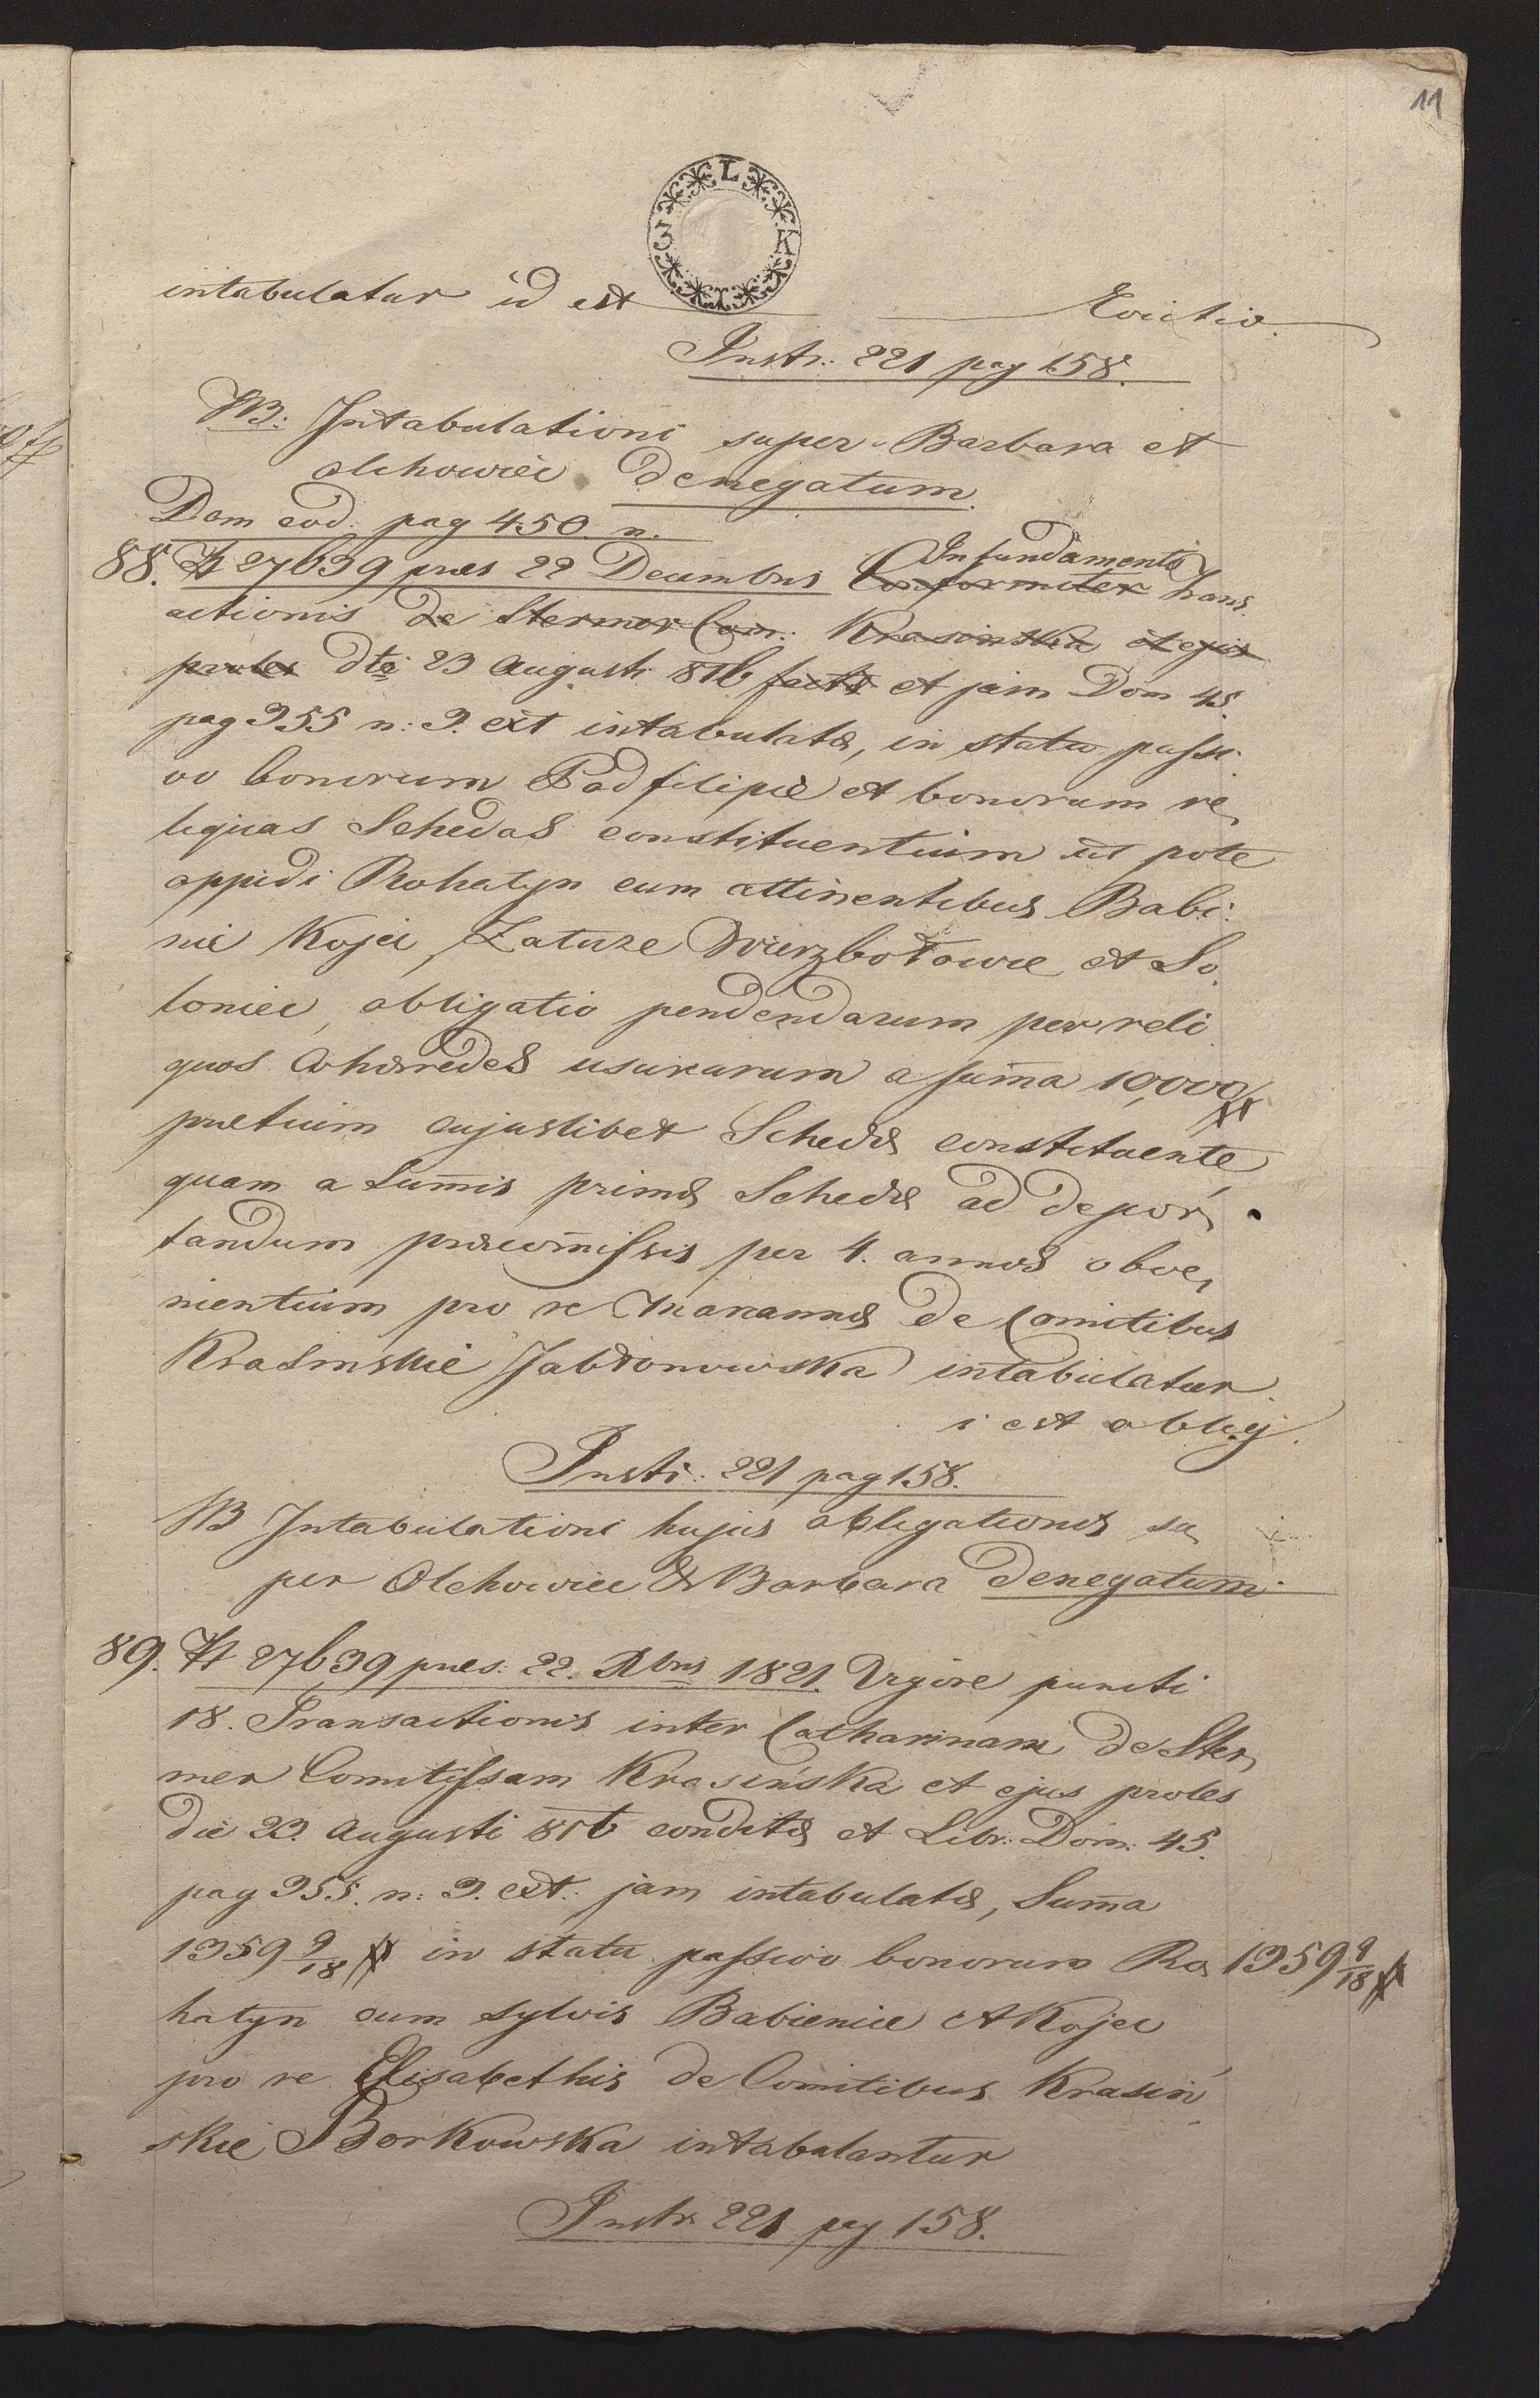 11
3 L K
intabulatur id est Evictio.
Instr: 221 pag 158.
NB: Intabulationi super Barbara et
olchowiec denegatum.
Dom eod: pag 450. n.
In fundamento
88. 27639 pres 22 Decembris Conformiter Trans
actionis de Stermer Com: Krasinska et ejus
proles dto 23 Augusti 816 factæ et jam Dom 45.
pag 355 n: 3. ext intabulatæ, in statu passi
vo bonorum Podfilipie et bonorum re
liquas Schedas constituentium ut pote
oppidi Rohatyn cum attinentibus Babi
nie Kojci, Załuze Wierzbołowce et So
loniec, obligatio pendendarum per reli
quos Cohæredes usurarum a sum̄a 10,000
pretium cujuslibet Schedæ constituente
quam a Sum̄is primæ Schedæ ad depor
tandum præcom̄issis per 4. annos obve
nientium pro re Mariannæ de Comitibus
Krasinskie Jabłonowska intabulatur.
i est oblig.
Instr: 221 pag 158.
NB Intabulationi hujus obligationis su
per Olchowiec & Barbara denegatum.
89. 27639 pres: 22. Xbris 1821. Vigore puncti
18. Transactionis inter Catharinam de Ster
mer Comitissam Krasińska et ejus proles
die 23. Augusti 816 conditæ et Libr: Dom: 45.
pag 355. n: 3. ext: jam intabulatæ, Sum̄a
1359 9/18 in statu passivo bonorum Ro 1359 9/18
hatyn cum sylvis Babienice et Kojec
pro re Elisabethis de Comitibus Krasiń
skie Borkowska intabulantur
Instr 221 pag 158.